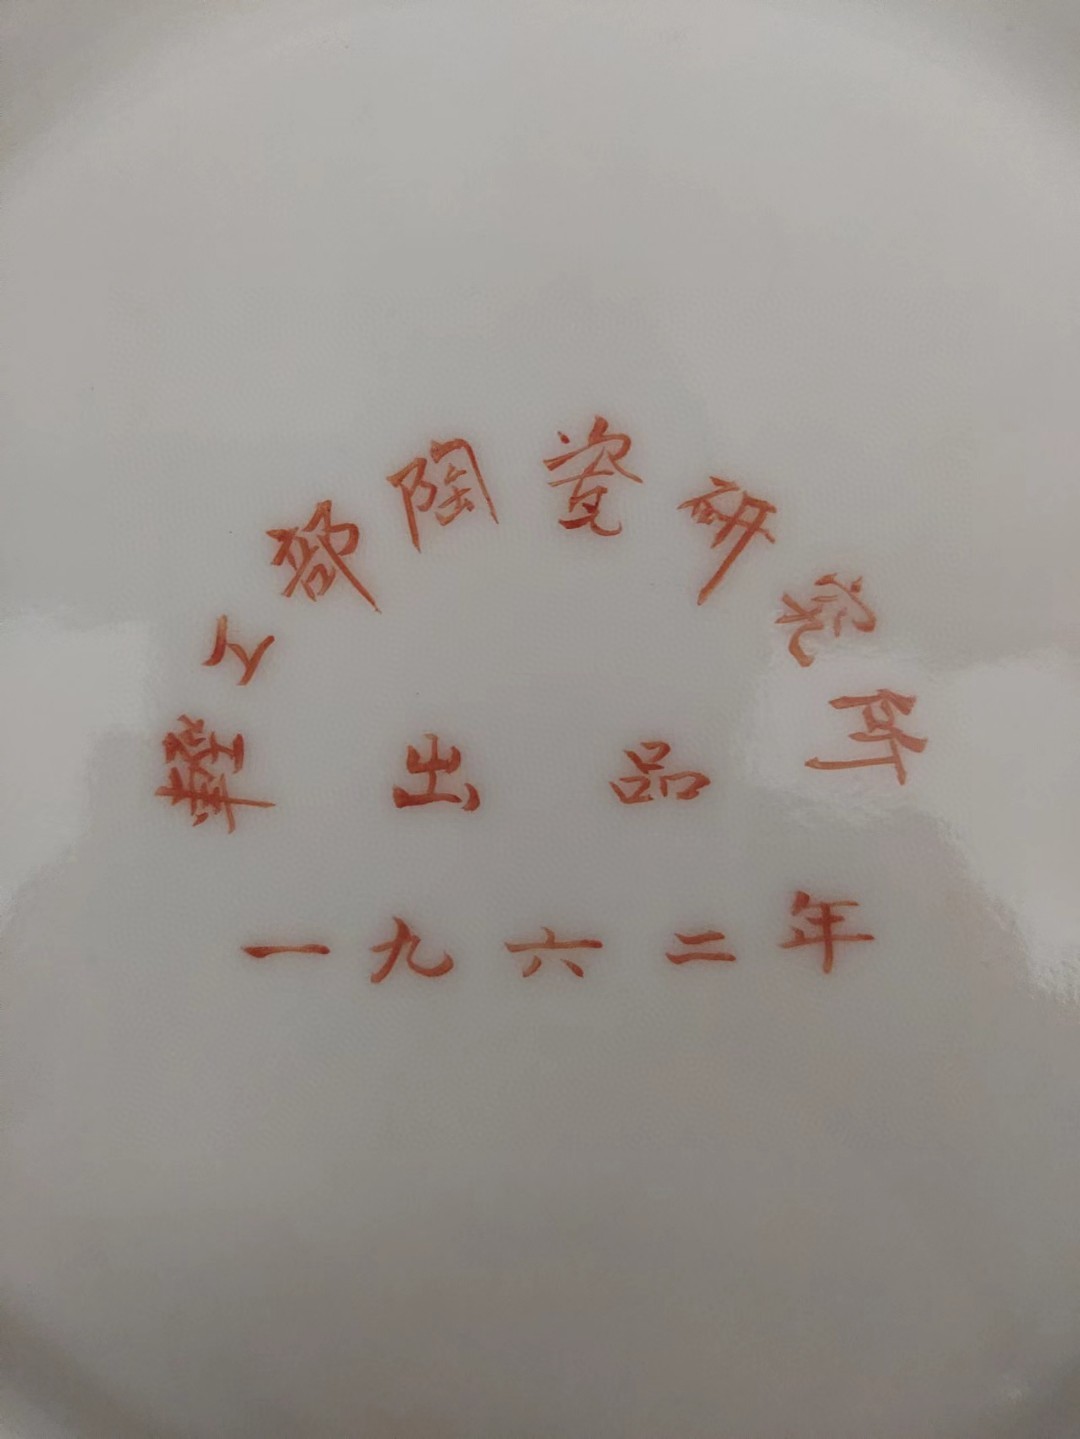 輕工部陶瓷研究所
出品
一九六二年